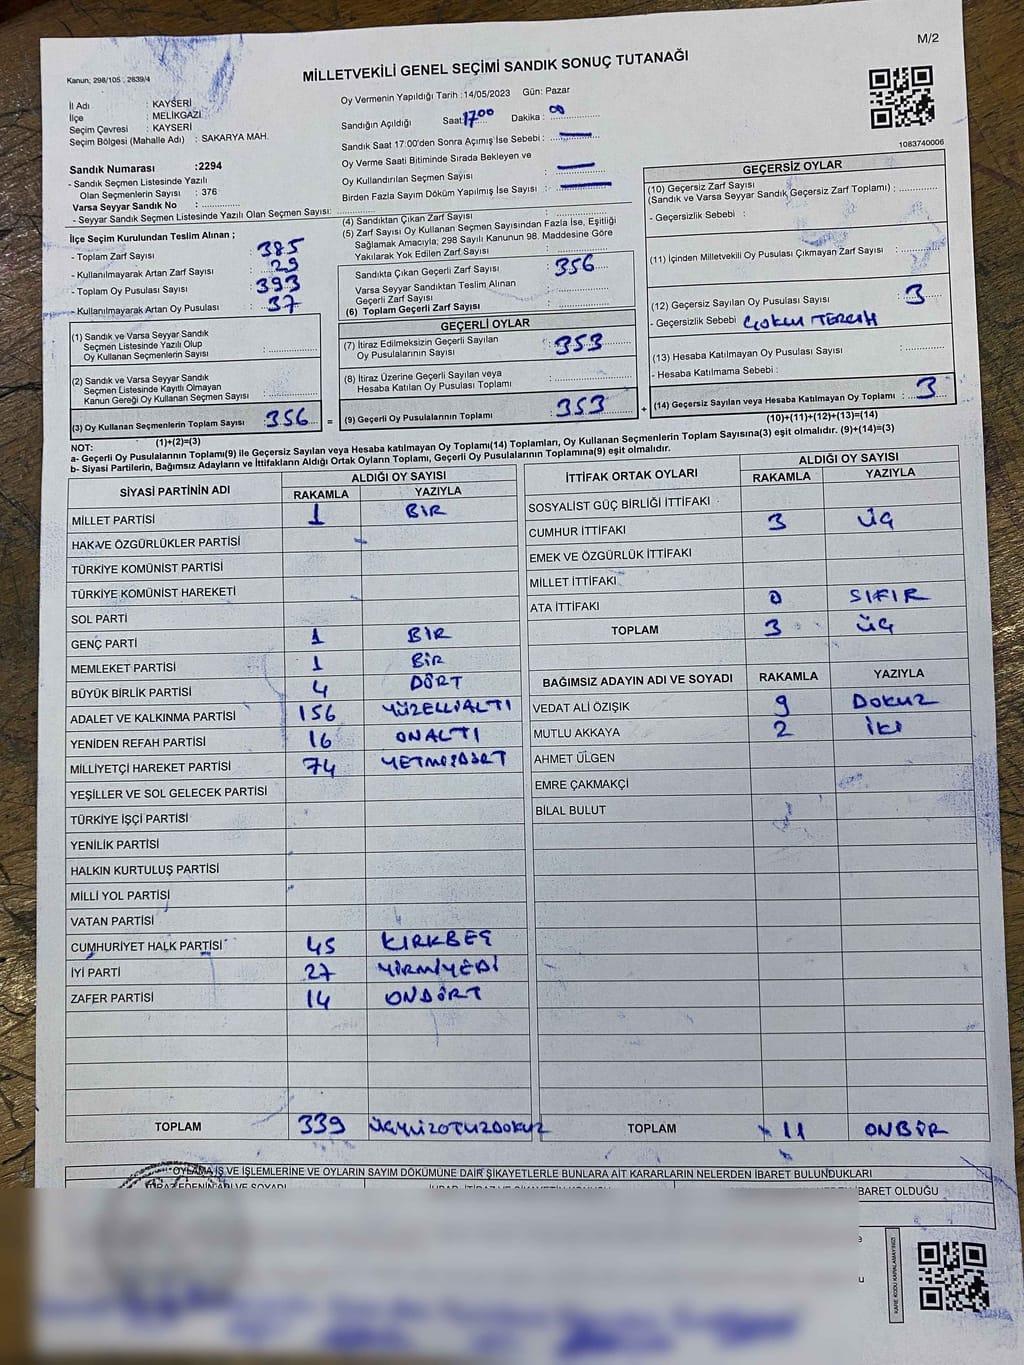 M/2
Kanun: 298/105 , 2839/4
MİLLETVEKİLİ GENEL SEÇİMİ SANDIK SONUÇ TUTANAĞI
İl Adı : KAYSERİ
İlçe : MELİKGAZİ
Seçim Çevresi : KAYSERİ
Seçim Bölgesi (Mahalle Adı) : SAKARYA MAH.
Oy Vermenin Yapıldığı Tarih :14/05/2023 Gün: Pazar
Sandığın Açıldığı Saat: 17.00 Dakika : 00
Sandık Saat 17:00'den Sonra Açımış İse Sebebi : —
Oy Verme Saati Bitiminde Sırada Bekleyen ve
Oy Kullandırılan Seçmen Sayısı : —
Birden Fazla Sayım Döküm Yapılmış İse Sayısı : —
1083740006
Sandık Numarası :2294
- Sandık Seçmen Listesinde Yazılı
Olan Seçmenlerin Sayısı : 376
Varsa Seyyar Sandık No :
- Seyyar Sandık Seçmen Listesinde Yazılı Olan Seçmen Sayısı:
İlçe Seçim Kurulundan Teslim Alınan ;
- Toplam Zarf Sayısı : 385
- Kullanılmayarak Artan Zarf Sayısı : 29
- Toplam Oy Pusulası Sayısı : 393
- Kullanılmayarak Artan Oy Pusulası : 37
(1) Sandık ve Varsa Seyyar Sandık
Seçmen Listesinde Yazılı Olup
Oy Kullanan Seçmenlerin Sayısı :
(2) Sandık ve Varsa Seyyar Sandık
Seçmen Listesinde Kayıtlı Olmayan
Kanun Gereği Oy Kullanan Seçmen Sayısı :
(3) Oy Kullanan Seçmenlerin Toplam Sayısı : 356 =
(1)+(2)=(3)
(4) Sandıktan Çıkan Zarf Sayısı :
(5) Zarf Sayısı Oy Kullanan Seçmen Sayısından Fazla İse, Eşitliği
Sağlamak Amacıyla; 298 Sayılı Kanunun 98. Maddesine Göre
Yakılarak Yok Edilen Zarf Sayısı :
Sandıkta Çıkan Geçerli Zarf Sayısı : 356
Varsa Seyyar Sandıktan Teslim Alınan
Geçerli Zarf Sayısı :
(6) Toplam Geçerli Zarf Sayısı :
GEÇERLİ OYLAR
(7) İtiraz Edilmeksizin Geçerli Sayılan
Oy Pusulalarının Sayısı : 353
(8) İtiraz Üzerine Geçerli Sayılan veya
Hesaba Katılan Oy Pusulası Toplamı :
(9) Geçerli Oy Pusulalarının Toplamı : 353 +
GEÇERSİZ OYLAR
(10) Geçersiz Zarf Sayısı
(Sandık ve Varsa Seyyar Sandık Geçersiz Zarf Toplamı) :
- Geçersizlik Sebebi :
(11) İçinden Milletvekili Oy Pusulası Çıkmayan Zarf Sayısı :
(12) Geçersiz Sayılan Oy Pusulası Sayısı : 3
- Geçersizlik Sebebi : ÇOKLU TERCİH
(13) Hesaba Katılmayan Oy Pusulası Sayısı :
- Hesaba Katılmama Sebebi :
(14) Geçersiz Sayılan veya Hesaba Katılmayan Oy Toplamı : 3
(10)+(11)+(12)+(13)=(14)
NOT:
a- Geçerli Oy Pusulalarının Toplamı(9) ile Geçersiz Sayılan veya Hesaba katılmayan Oy Toplamı(14) Toplamları, Oy Kullanan Seçmenlerin Toplam Sayısına(3) eşit olmalıdır. (9)+(14)=(3)
b- Siyasi Partilerin, Bağımsız Adayların ve İttifakların Aldığı Ortak Oyların Toplamı, Geçerli Oy Pusulalarının Toplamına(9) eşit olmalıdır.
SİYASİ PARTİNİN ADI ALDIĞI OY SAYISI
RAKAMLA YAZIYLA
MİLLET PARTİSİ 1 BİR
HAK VE ÖZGÜRLÜKLER PARTİSİ
TÜRKİYE KOMÜNİST PARTİSİ
TÜRKİYE KOMÜNİST HAREKETİ
SOL PARTİ
GENÇ PARTİ 1 BİR
MEMLEKET PARTİSİ 1 BİR
BÜYÜK BİRLİK PARTİSİ 4 DÖRT
ADALET VE KALKINMA PARTİSİ 156 YÜZELLİALTI
YENİDEN REFAH PARTİSİ 16 ONALTI
MİLLİYETÇİ HAREKET PARTİSİ 74 YETMİŞDÖRT
YEŞİLLER VE SOL GELECEK PARTİSİ
TÜRKİYE İŞÇİ PARTİSİ
YENİLİK PARTİSİ
HALKIN KURTULUŞ PARTİSİ
MİLLİ YOL PARTİSİ
VATAN PARTİSİ
CUMHURİYET HALK PARTİSİ 45 KIRKBEŞ
İYİ PARTİ 27 YİRMİYEDİ
ZAFER PARTİSİ 14 ONDÖRT
TOPLAM 339 ÜÇYÜZOTUZDOKUZ
İTTİFAK ORTAK OYLARI ALDIĞI OY SAYISI
RAKAMLA YAZIYLA
SOSYALİST GÜÇ BİRLİĞİ İTTİFAKI
CUMHUR İTTİFAKI 3 ÜÇ
EMEK VE ÖZGÜRLÜK İTTİFAKI
MİLLET İTTİFAKI
ATA İTTİFAKI 0 SIFIR
TOPLAM 3 ÜÇ
BAĞIMSIZ ADAYIN ADI VE SOYADI RAKAMLA YAZIYLA
VEDAT ALİ ÖZIŞIK 9 DOKUZ
MUTLU AKKAYA 2 İKİ
AHMET ÜLGEN
EMRE ÇAKMAKÇİ
BİLAL BULUT
TOPLAM 11 ONBİR
OYLAMA İŞ VE İŞLEMLERİNE VE OYLARIN SAYIM DÖKÜMÜNE DAİR ŞİKAYETLERLE BUNLARA AİT KARARLARIN NELERDEN İBARET BULUNDUKLARI
İTİRAZ EDENİN ADI VE SOYADI
İBARET OLDUĞU
KARE KODU KARALAMAYINIZ!